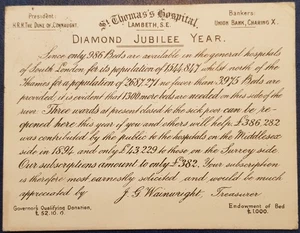 President:
H.R.H. The Duke of Connaught.
St Thomas's Hospital,
LAMBETH, S.E.
Bankers:
Union Bank, Charing X.
DIAMOND JUBILEE YEAR.
Since only 986 Beds are available in the general hospitals
of South London, for its population of 1,844,847 whilst north of the
Thames for a population of 2,687,271 no fewer than 3975 Beds are
provided, it is evident that 1500 more beds are needed on this side of the
river. Three wards at present closed to the sick poor can be re-
opened here this year, if you and others will help. £386,282
was contributed by the public to the hospitals on the Middlesex
side in 1894, and only £43,229 to those on the Surrey side.
Our subscriptions amount to only £382. Your subscription
is therefore most earnestly solicited, and would be much
appreciated by J. G. Wainwright, Treasurer
Governors Qualifying Donation,
£52.10.0.
Endowment of Bed
£1,000.